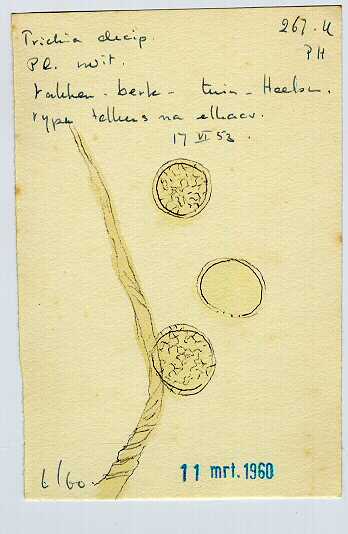 Trichia decip.
267. U
Pl. wit.
PH
takken - berk - tuin - Heelsum.
type telkens na elkaar.
17 VI 53.
6/60
11 mrt. 1960